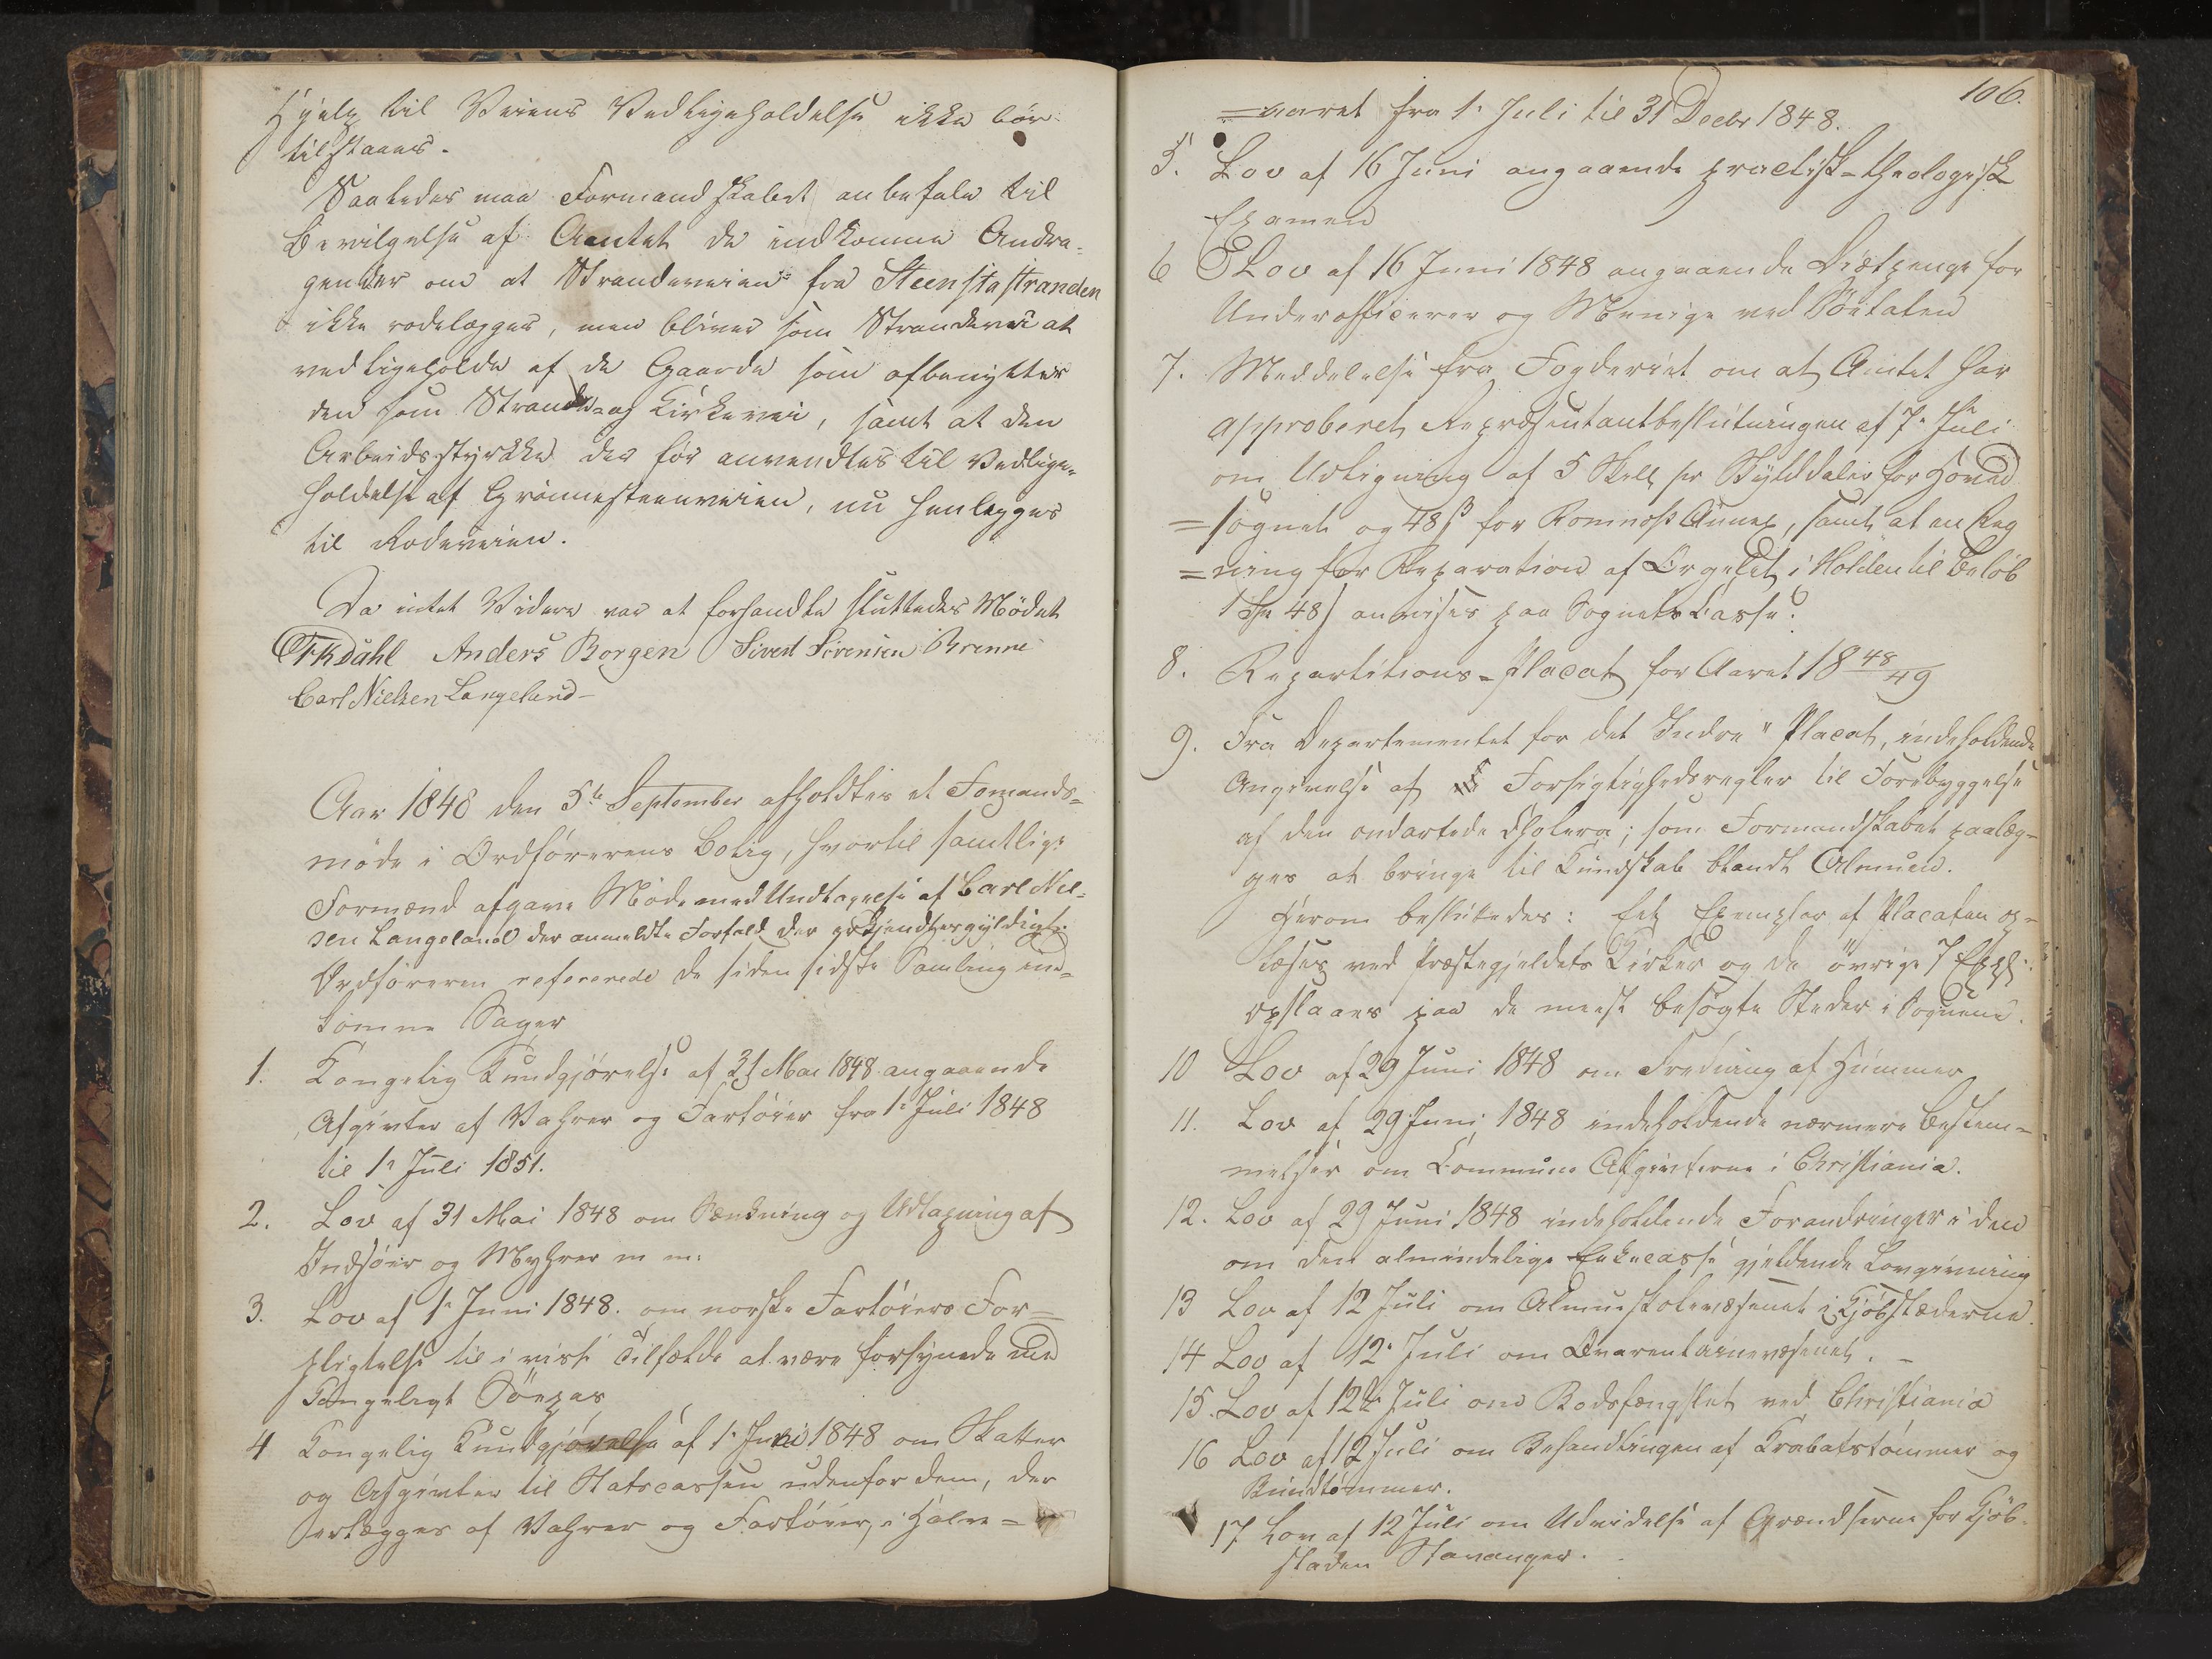 Hjelp til Veiens Vedligeholdelse ikke bör
tilstaaes.
Saaledes maa Formandskabet anbefale til
Bevilgelse af Amtet de indkomne Andra-
gender om at Strandeveien fra Steenstastranden
ikke rodelægges, men bliver som Strandevei at
vedligeholde af de Gaarde som afbenytter
den som Strande- og Kirkevei, samt at den
Arbeidsstyrkke der før anvendtes til Vedlige-
holdelse af Grönnesteenveien, nu henlegges
til Rodeveien.
Da intet Videre var at forhandle sluttedes Mödet
Anders Borgen Sivert Sörensen Brenne
Carl Nielsen Langeland
Aar 1848 den 5te September afholdtes et Formands-
möde i Ordförerens Bolig, hvortil samtlige
Formænd afgave Möde med Undtagelse af Carl Niel-
sen Langeland der anmeldte Forfald der erkjendtes gyldigt.
Ordföreren refererede de siden sidste Samling ind-
komne Sager
1. Kongelig Kundgjörelse af 31 Mai 1848 angaaende
Afgivter af Vahrer og Fartöier fra 1e Juli 1848
til 1e Juli 1851.
2. Lov af 31 Mai 1848 om Sænkning og Udtapning af
Indsöer og Myhrer m m:
3. Lov af 1e Juni 1848. om norske Fartöiers For=
pligtelse til i visse Tilfælde at være forsynede med
Kongeligt Söepas
4 Kongelig Kundgjörelse af 1e Juni 1848 om Skatter
og Afgivter til Statscassen udenfor dem, der
erlægges af Vahrer og Fartöier, i Halve=
106.
=aaret fra 1e Juli til 31 Decbr 1848.
5. Lov af 16 Juni angaaende practisk-theologisk
Examen
6 Lov af 16 Juni 1848 angaaende Diætpenge for
Underofficerer og Menige ved Söetaten
7. Meddelelse fra Fogderiet om at Amtet har
approberet Repræsentantbeslutningen af 7e Juli
om Udligning af 5 Skill pr Skylddaler for Hoved
=sognet og 48 ß for Romnæs Annex, samt at en Reg
=ning for Reparation af Orgelet i Holden til Belöb
48 ß anvises paa Sognets Casse.
8. Repartitions-Placat for Aaret 18 48/49
9. Fra Departementet for det Indre "Placat, indeholdende
Angivelse af Forsigtighedsregler til Forebyggelse
af den ondartede Cholera; som Formandskabet paalæg-
ges at bringe til Kundskab blandt Almuen.
Herom besluttedes: Et Exemplar af Placaten op-
læses ved Præstegjeldets Kirker og de övrige 7 Expl:
opslaaes paa de meest besögte Steder i Sognene.
10 Lov af 29 Juni 1848 om Fredning af Hummer
11. Lov af 29 Juni 1848 indeholdende nærmere Bestem-
melser om Commune Afgivterne i Christiania.
12. Lov af 29 Juni 1848 indeholdende Forandringer i den
om den almindelige Enkecasse gjeldende Lovgivning
13 Lov af 12 Juli om Almueskolevæsenet i Kjöbstæderne.
14 Lov af 12e Juli om Qvarentainevæsenet. -
15. Lov af 12te Juli om Bodsfængslet ved Christiania
16 Lov af 12 Juli om Behandlingen af Krabatstömmer og
Bundtömmer.
17 Lov af 12 Juli om Udvidelse af Grændserne for Kjöb-
staden Stavanger.